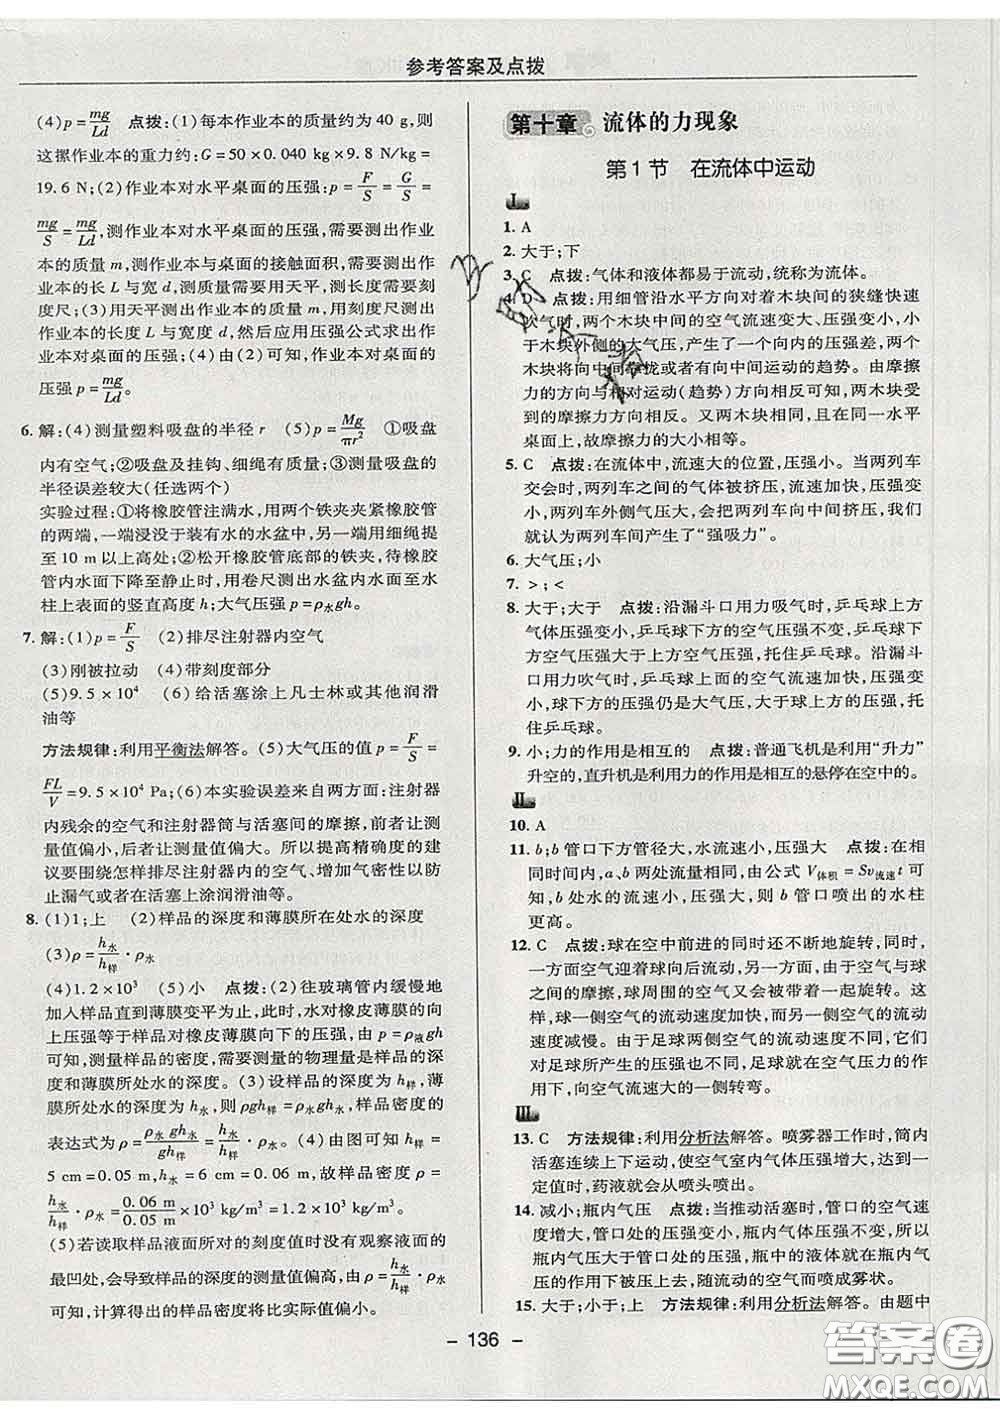 参考答案及点拨
(4)p=mg/Ld 点拨:(1)每本作业本的质量约为40 g,则
这摞作业本的重力约:G=50×0.040 kg×9.8 N/kg=
19.6 N;(2)作业本对水平桌面的压强:p=F/S=G/S=
mg/S=mg/Ld,测作业本对水平桌面的压强,需要测出作业
本的质量m,测作业本与桌面的接触面积,需要测出作
业本的长L与宽度d,测量质量需要用天平,测长度用
刻度尺;(3)用天平测出作业本的质量m,用刻度尺测出
作业本的长度L与宽度d,然后应用压强公式求出作
业本对桌面的压强;(4)由(2)可知,作业本对桌面的
压强p=mg/Ld。
6. 解:(4)测量塑料吸盘的半径r (5)p=Mg/πr² ①吸盘
内有空气;②吸盘及挂钩、细绳有质量;③测量吸盘的
半径误差较大(任选两个)
实验过程:①将橡胶管注满水,用两个铁夹夹紧橡胶管
的两端,一端浸没于装有水的水盆中,另一端用细绳提
至10 m以上高处;②松开橡胶管底部的铁夹,待橡胶
管内水面下降至静止时,用卷尺测出水盆内水面至水
柱上表面的竖直高度h;大气压强p=ρ水gh。
7. 解:(1)p=F/S (2)排尽注射器内空气
(3)刚被拉动 (4)带刻度部分
(5)9.5×10⁴ (6)给活塞涂上凡士林或其他润滑
油等
方法规律:利用平衡法解答。(5)大气压的值p=F/S=
FL/V=9.5×10⁴ Pa;(6)本实验误差来自两方面:注射器
内残余的空气和注射器筒与活塞间的摩擦,前者让测
量值偏小,后者让测量值偏大。所以提高精确度的建
议要围绕怎样排尽注射器内的空气、增加气密性以防
止漏气或者在活塞上涂润滑油等。
8. (1)1;上 (2)样品的深度和薄膜所在处水的深度
(3)ρ=h水/h样·ρ水
(4)1.2×10³ (5)小 点拨:(2)往玻璃管内缓慢地
加入样品直到薄膜变平为止,此时,水对橡皮薄膜的向
上压强等于样品对橡皮薄膜向下的压强,由p=ρ液gh
可知,测量样品的密度,需要测量的物理量是样品的深
度和薄膜所处水的深度。(3)设样品的深度为h样,薄
膜所处水的深度为h水,则ρgh样=ρ水gh水,样品密度的
表达式为ρ=ρ水gh水/gh样=h水/h样·ρ水。(4)由图可知h样=
5 cm=0.05 m,h水=6 cm=0.06 m,故样品密度ρ=
h水/h样·ρ水=0.06 m/0.05 m×10³ kg/m³=1.2×10³ kg/m³。
(5)若读取样品液面所对的刻度值时没有观察液面的
最凹处,会导致样品的深度的测量值偏高,由ρ=h水/h样·ρ水
可知,计算得出的样品密度将比实际值偏小。
第十章 流体的力现象
第1节 在流体中运动
Ⅰ
1. A
2. 大于;下
3. C 点拨:气体和液体都易于流动,统称为流体。
4. D 点拨:用细管沿水平方向对着木块间的狭缝快速
吹气时,两个木块中间的空气流速变大、压强变小,
小于木块外侧的大气压,产生了一个向内的压强差,两个
木块将向中间靠拢或者有向中间运动的趋势。由摩擦
力的方向与相对运动(趋势)方向相反可知,两木块受
到的摩擦力方向相反。又两木块相同,且在同一水平
桌面上,故摩擦力的大小相等。
5. C 点拨:在流体中,流速大的位置,压强小。当两列车
交会时,两列车之间的气体被挤压,流速加快,压强变
小,两列车外侧气压强,会把两列车向中间挤压,我们
就认为两列车间产生了“强吸力”。
6. 大气压;小
7. >;<
8. 大于;大于 点拨:沿漏斗口用力吸气时,乒乓球上方
气体压强变小,乒乓球下方的空气压强不变,乒乓球下
方空气压强大于上方空气压强,托住乒乓球。沿漏斗
口用力吹气时,乒乓球上面的空气流速变大,空气压强
变小,球下方的压强仍是大气压,大于球上方的压强,托
住乒乓球。
9. 小;力的作用是相互的 点拨:普通飞机是利用“升力”
升空的,直升机是利用力的作用是相互的悬停在空中的。
Ⅱ
10. A
11. b;b管口下方管径大,水流速小,压强大 点拨:在相
同时间内,a、b两处流量相同,由公式V体积=Sv流速t可
知,b处水流速小,压强大,则b管口喷出的水柱
更高。
12. C 点拨:球在空中前进的同时还不断地旋转,同时,
一方面空气迎着球向后流动,另一方面,由于空气与球
之间的摩擦,球周围的空气又会被带着一起旋转。这
样,球一侧空气的流动速度加快,而另一侧空气的流动
速度减慢。由于足球两边空气的流动速度不同,它们
对足球所产生的压强也不同,足球就在空气压力的作用
下,向空气流速大的一侧转弯。
Ⅲ
13. C 方法规律:利用分析法解答。喷雾器工作时,筒内
活塞连续上下运动,使空气室内气体压强增大,达到一
定值时,药液就会从喷头喷出。
14. 减小;瓶内气压 点拨:当推动活塞时,管口的空气速
度增大,管口处的压强变小,瓶内气体压强不变,所以
瓶内气压大于管口处的压强,瓶中的液体就在瓶内气
压的作用下被压上去,随流动的空气而成雾状。
15. 大于;小于;上 方法规律:利用分析法解答。由题中
- 136 -
答案卷
MXQE.COM